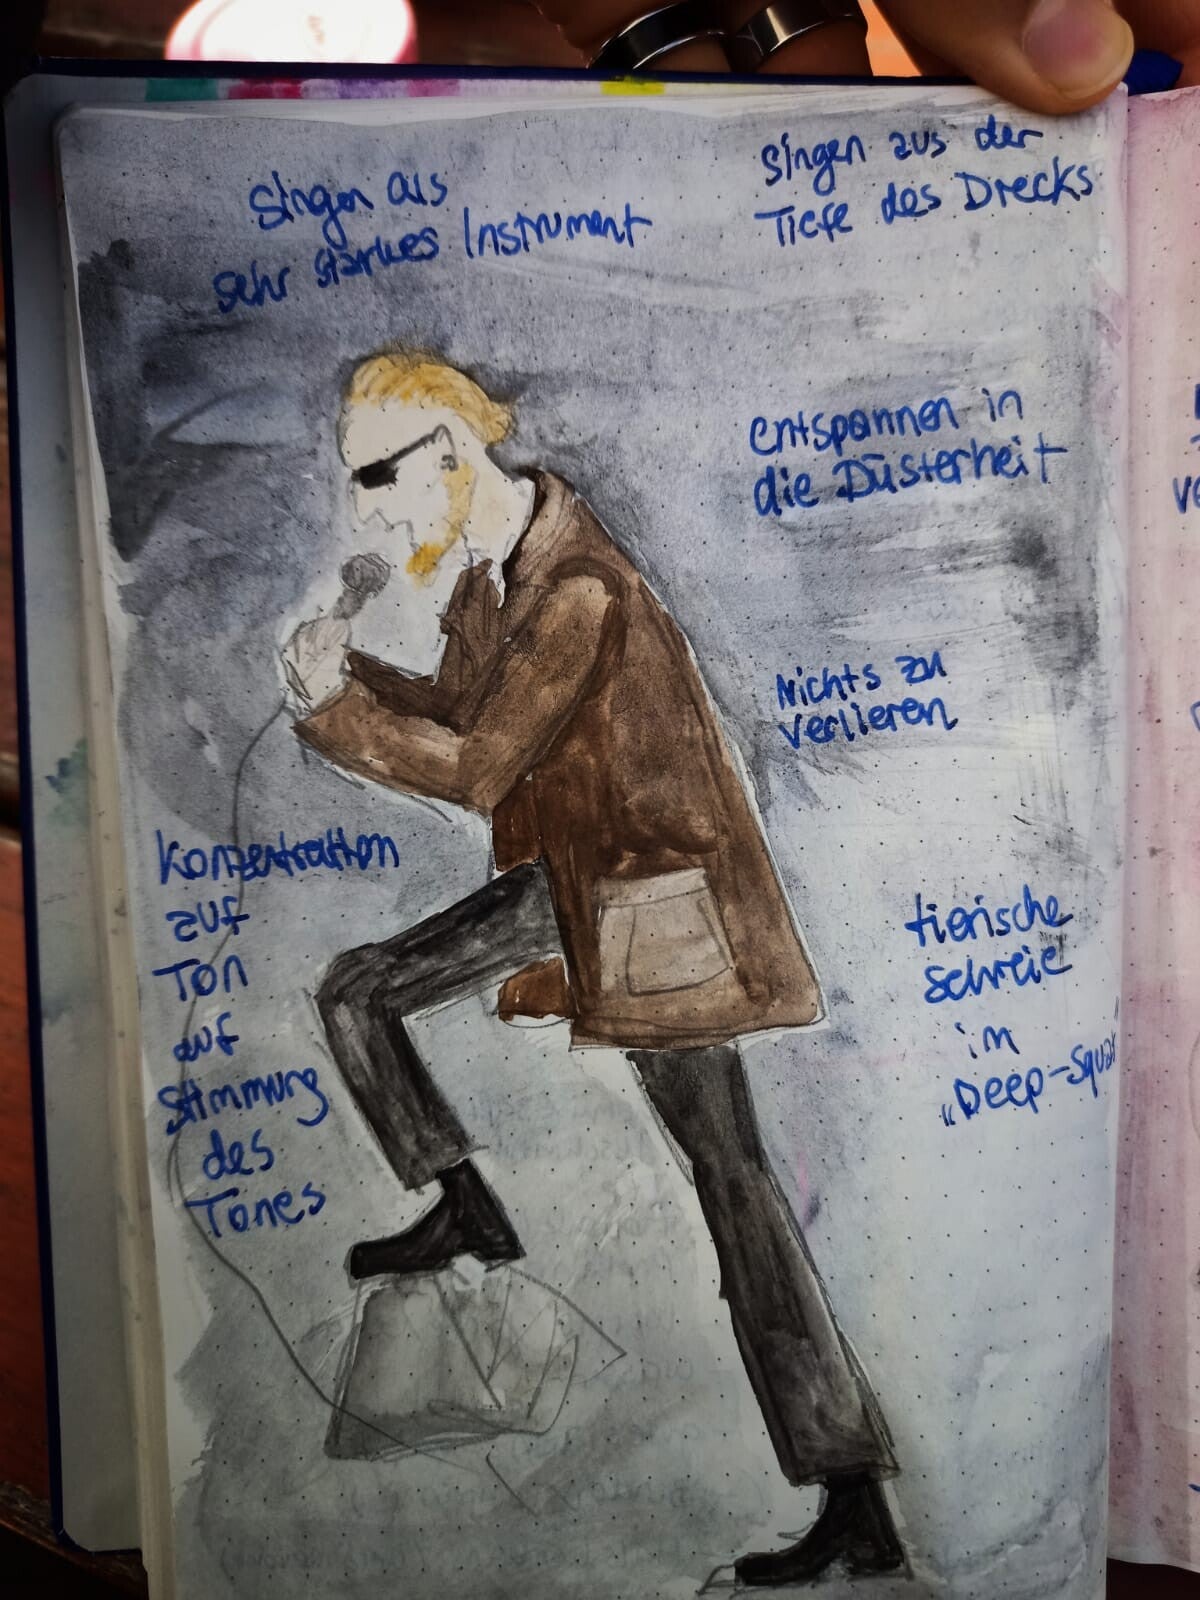 Singen als
sehr starkes Instrument
Singen aus der
Tiefe des Drecks
entspannen in
die Düsterheit
Nichts zu
verlieren
Konzentration
auf
Ton
auf
Stimmung
des
Tones
tierische
Schreie
im
"Deep-Squat"